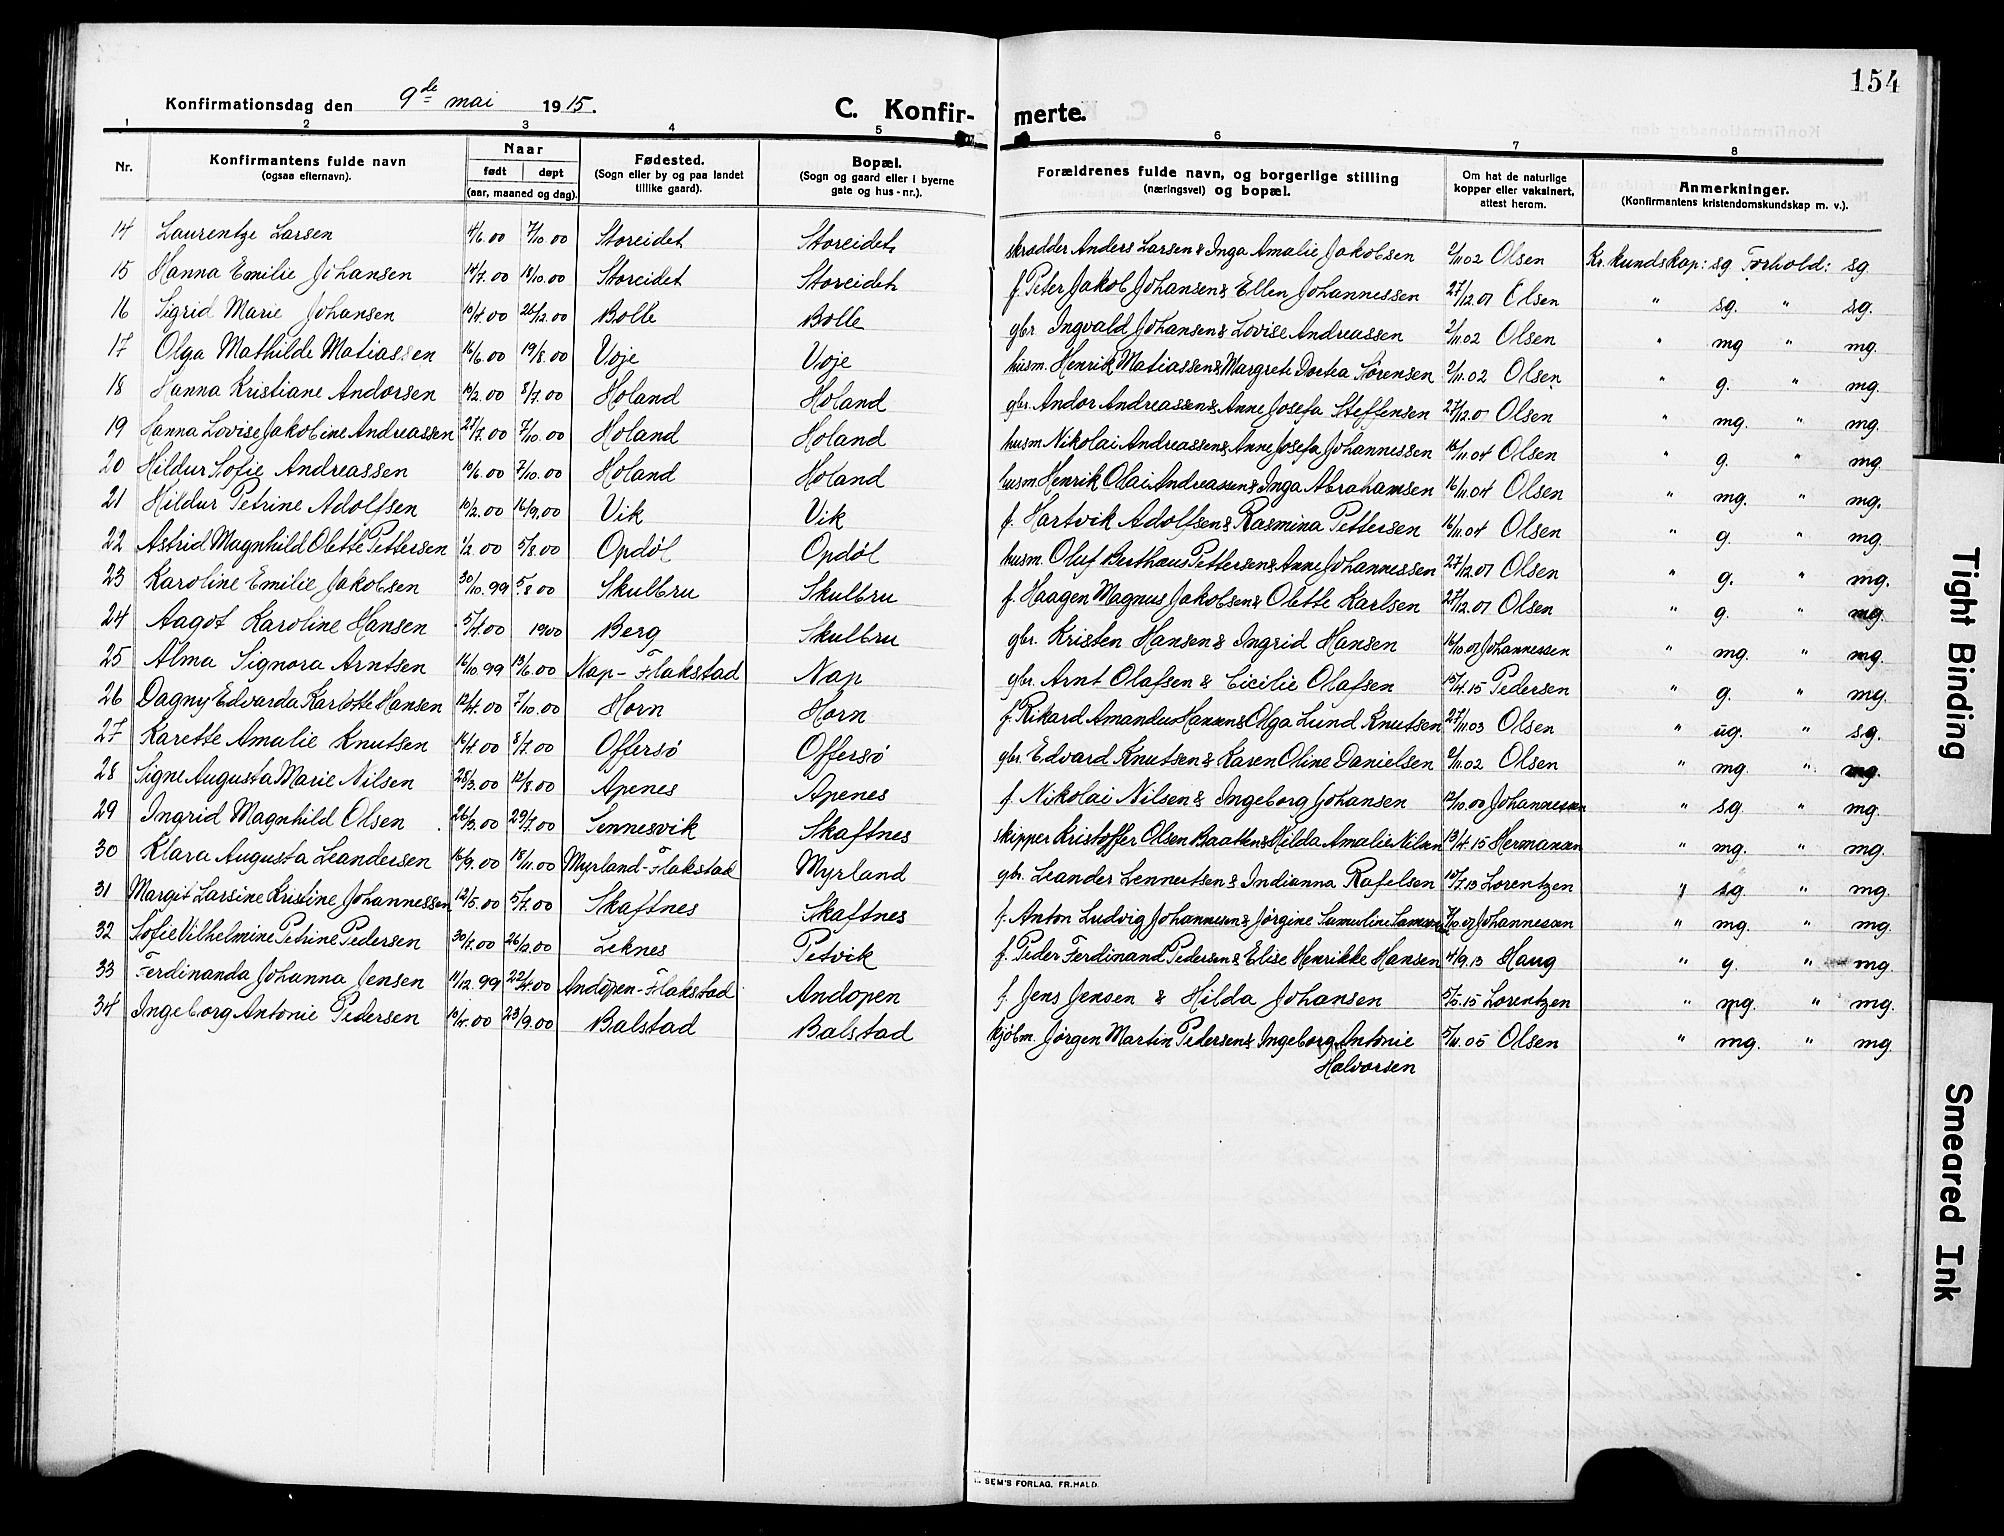 154
Konfirmationsdag den 9de mai 1915.
C. Konfirmerte.
1 2 3 4 5 6 7 8
Nr. Konfirmantens fulde navn (ogsaa efternavn). Naar født døpt (aar, maaned og dag). Fødested. (Sogn eller by og paa landet tillike gaard). Bopæl. (Sogn og gaard eller i byerne gate og hus-nr.). Forældrenes fulde navn, og borgerlige stilling (næringsvei) og bopæl. Om hat de naturlige kopper eller vaksinert, attest herom. Anmerkninger. (Konfirmantens kristendomskundskap m. v.).
14 Laurentze Larsen 4/6.00 7/10.00 Storeidet Storeidet skrædder Anders Larsen & Inga Amalie Jakobsen 2/11 02 Olsen Kr. kundskap: sg Forhold: sg.
15 Hanna Emilie Johansen 14/7.00 18/10.00 Storeidet Storeidet f. Peter Jakob Johansen & Ellen Johannessen 27/12.01 Olsen " sg. " sg.
16 Sigrid Marie Johansen 10/4.00 26/12.00 Bolle Bolle gbr. Ingvald Johansen & Lovise Andreassen 2/11 02 Olsen " mg " mg.
17 Olga Mathilde Matiassen 16/6.00 19/8.00 Voje Voje husm. Henrik Matiassen & Margrete Dortea Sørensen 2/11.02 Olsen " g. " mg.
18 Hanna Kristiane Andorsen 19/2.00 8/7.00 Holand Holand gbr. Andor Andreassen & Anne Josefa Steffensen 27/12.01 Olsen " mg. " mg.
19 Hanna Lovise Jakobine Andreassen 27/7.00 7/10.00 Holand Holand husm Nikolai Andreassen & Anne Josefa Johannessen 16/11.04 Olsen " g. " mg.
20 Hildur Sofie Andreassen 10/6.00 7/10.00 Holand Holand husm Henrik Olai Andreassen & Inga Abrahamsen 16/11.04 Olsen " mg. " mg.
21 Hildur Petrine Adolfsen 10/2.00 16/9.00 Vik Vik f. Hartvik Adolfsen & Rasmina Pettersen 16/11.04 Olsen " g. " mg.
22 Astrid Magnhild Olette Pettersen 1/2.00 5/8.00 Opdøl Opdøl husm. Oluf Berthæus Pettersen & Anne Johannessen 27/12.01 Olsen " g. " mg.
23 Karoline Emilie Jakobsen 30/10.99 5/8 00 Skulbru Skulbru f. Haagen Magnus Jakobsen & Olette Karlsen 27/12.01 Olsen " g. " mg.
24 Aagot Karoline Hansen 5/4.00 1900 Berg Skulbru gbr. Kristen Hansen & Ingrid Hansen 16/10.01 Johannessen " mg. " mg.
25 Alma Signora Arntsen 16/10.99 13/6.00 Nap-Flakstad Nap gbr. Arnt Olafsen & Cicilie Olafsen 15/4.15 Pedersen " g. " mg.
26 Dagny Edvarda Karlotte Hansen 12/4.00 7/10.00 Horn Horn f. Rikard Amandus Hansen & Olga Lund Knutsen 27/11.03 Olsen " ug. " sg.
27 Karette Amalie Knutsen 14/4.00 8/7.00 Offersø Offersø gbr. Edvard Knutsen & Karen Oline Danielsen 2/11.02 Olsen " mg. " mg.
28 Signe Augusta Marie Nilsen 28/3.00 12/8.00 Apenes Apenes f. Nikolai Nilsen & Ingeborg Johansen 12/10.00 Johannessen " sg. " mg.
29 Ingrid Magnhild Olsen 26/3.00 29/7.00 Sennesvik Skaftnes skipper Kristoffer Olsen Baatten & Hilda Amalie Nilsen 13/4.15 Hermansen " mg. " mg.
30 Klara Augusta Leandersen 16/9.00 18/11.00 Myrland-Flakstad Myrland gbr. Leander Lennertsen & Indianna Rafelsen 10/7.13 Lorentzen " sg. " mg.
31 Margit Larsine Kristine Johannessen 12/5.00 5/7.00 Skaftnes Skaftnes f. Anton Ludvig Johannesen & Jørgine Samueline 7/10.02 Johannessen " mg. " mg.
32 Sofie Vilhelmine Petrine Pedersen 30/8.00 26/12.00 Leknes Petvik f. Peder Ferdinand Pedersen & Elise Henrikke Hansen 4/9.13 Haug " g. " mg.
33 Ferdinanda Johanna Jensen 11/12.99 22/4.00 Andopen-Flakstad Andopen f. Jens Jensen & Hilda Johansen 5/5.15 Lorentzen " mg. " mg.
34 Ingeborg Antonie Pedersen 10/4.00 23/9.00 Balstad Balstad kjøbm. Jørgen Martin Pedersen & Ingeborg Antonie Halvorsen 5/11.05 Olsen " mg. " mg.
SEM'S FORLAG, FR.HALD.
Tight Binding
Smeared Ink